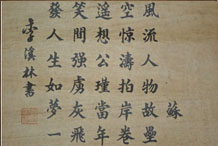 蘇
風流人物故壘
空惊濤拍岸卷
遥想公瑾當年
笑間强虜灰飛
發人生如夢一
李溪林書